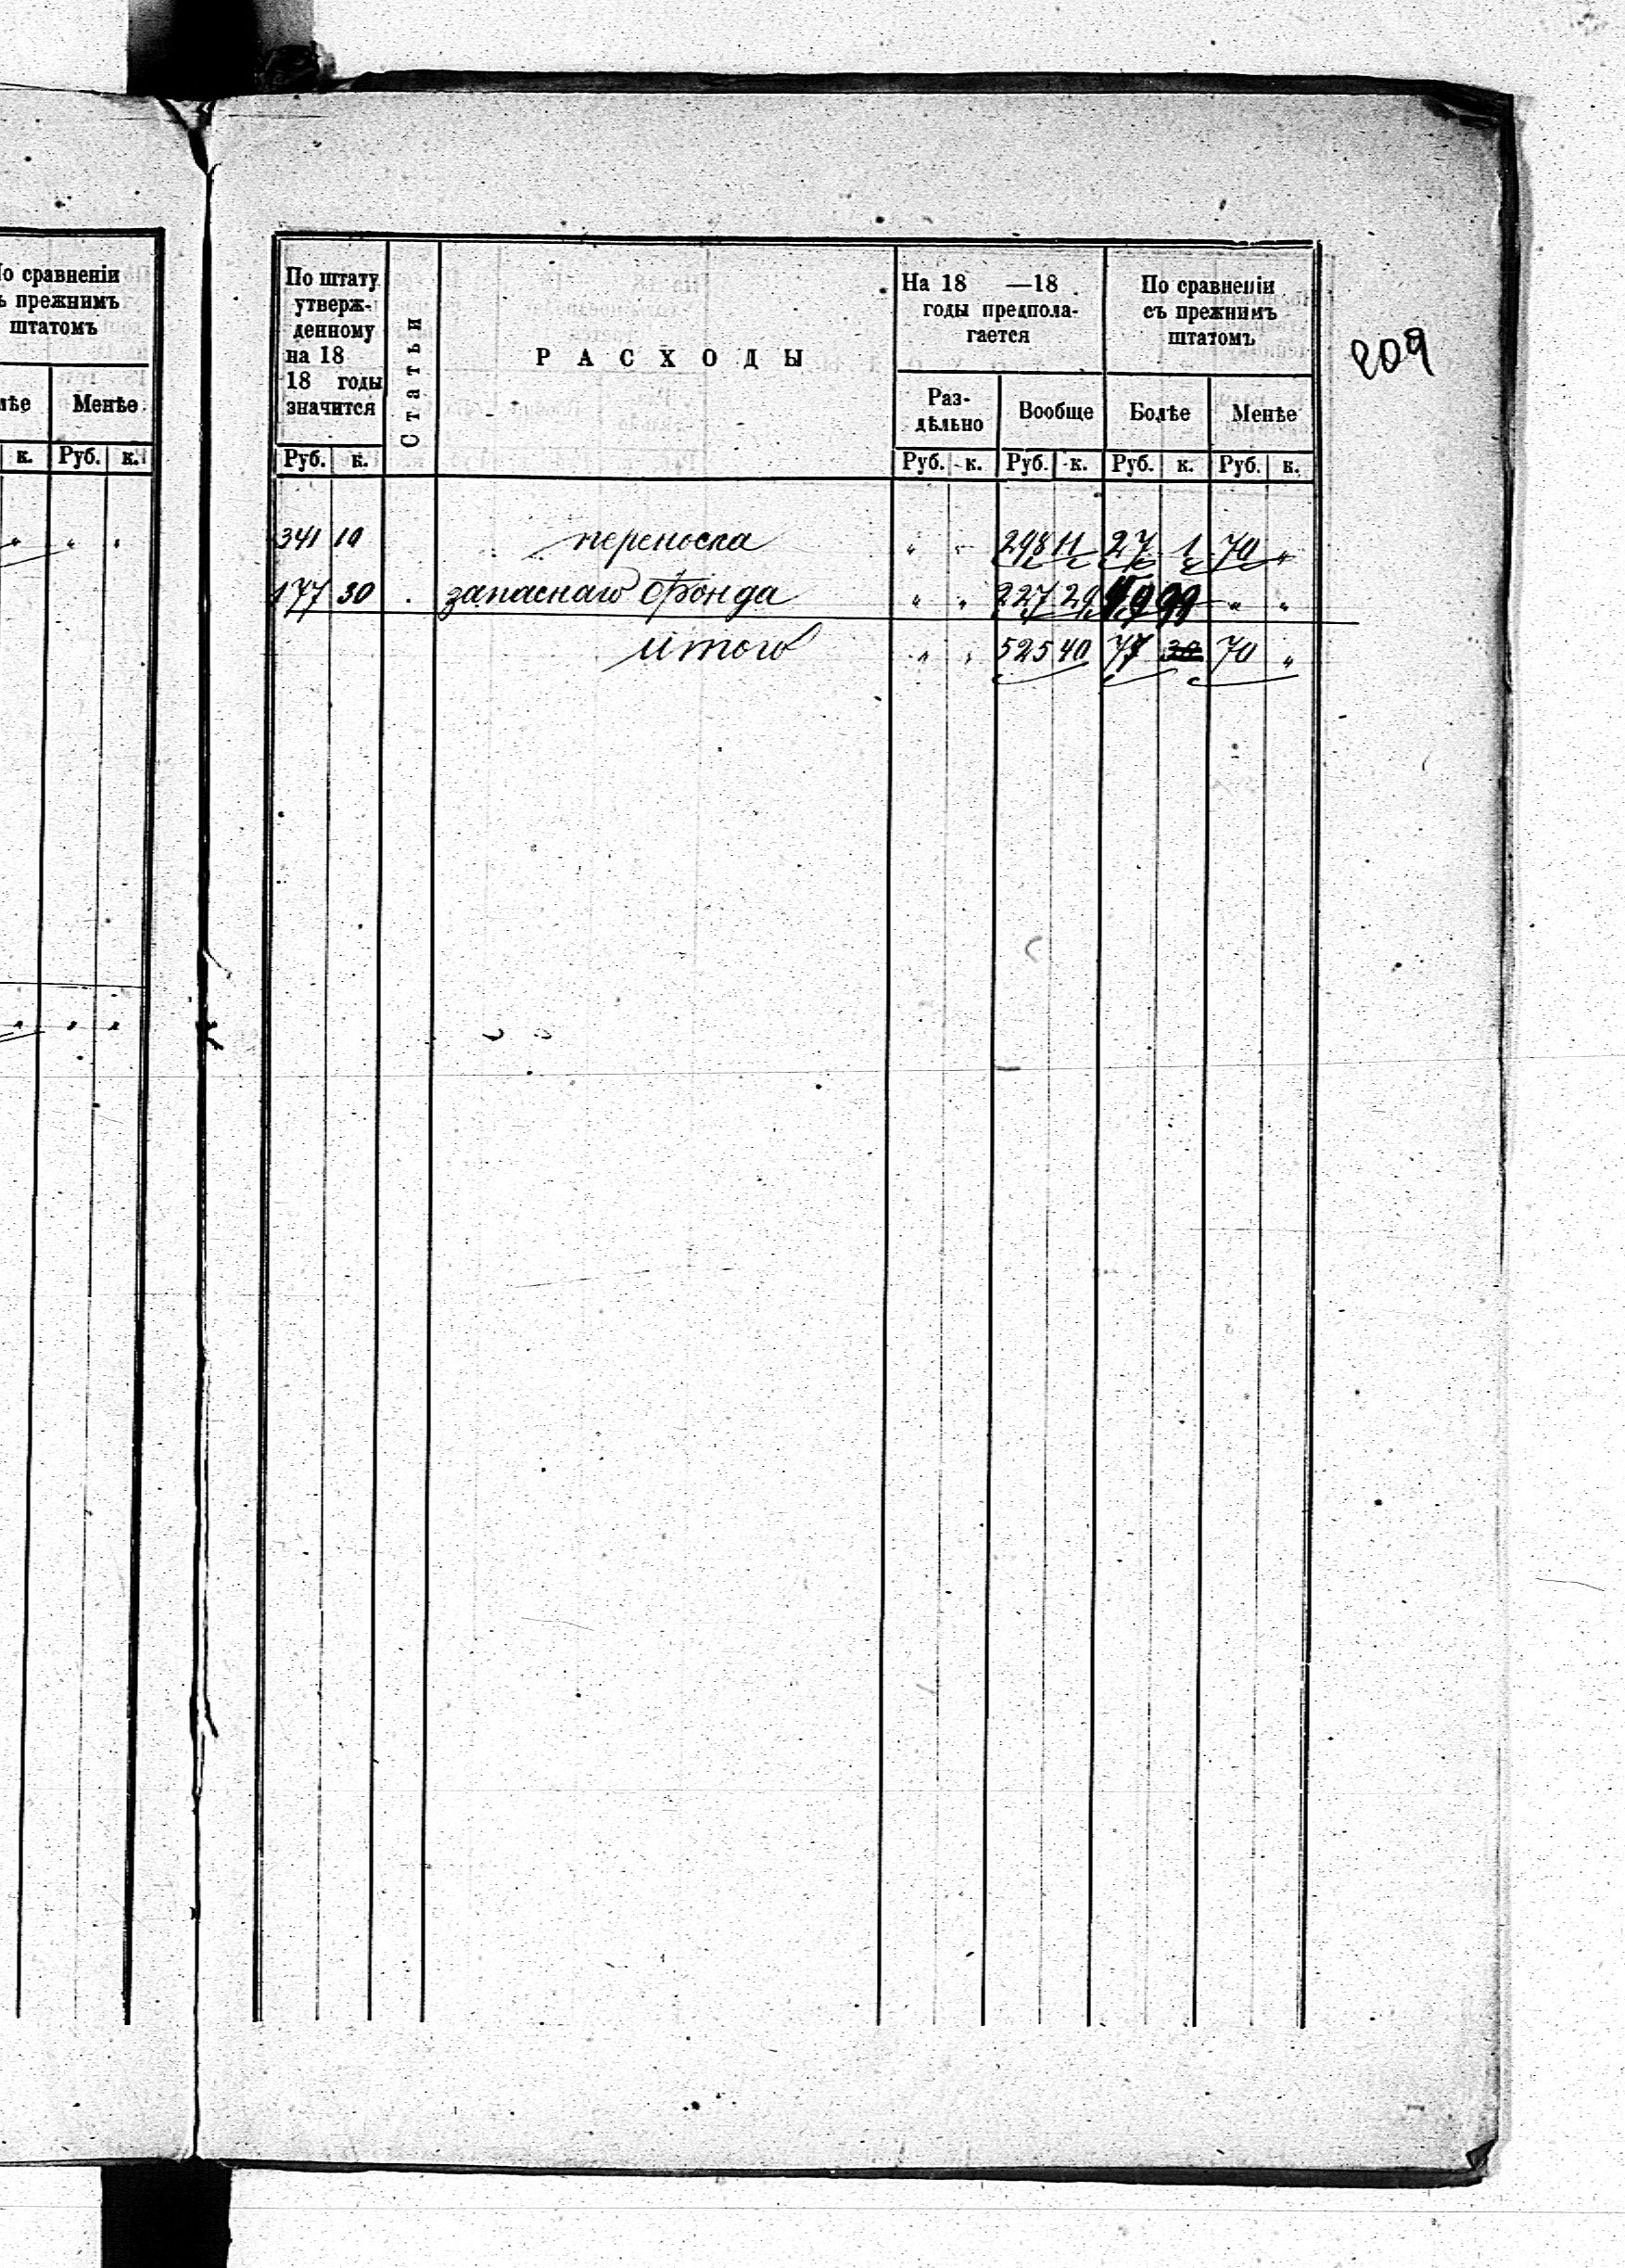 о сравненіи
ъ прежнимъ
штатомъ
лѣе Менѣе
к. Руб. к.
" " "
" " "
209
По штату
утверж-
денному
на 18
18 годы
значится
Статьи
РАСХОДЫ
На 18 —18
годы предпола-
гается
По сравненіи
съ прежнимъ
штатомъ
Раз-
дѣльно
Вообще
Болѣе
Менѣе
Руб. к. Руб. к. Руб. к. Руб. к. Руб. к.
341 10 переноска " " 298 11 27 1 70 "
177 30 запаснаго фонда " " 227 29 " "
Итого " " 525 40 77 30 70 "